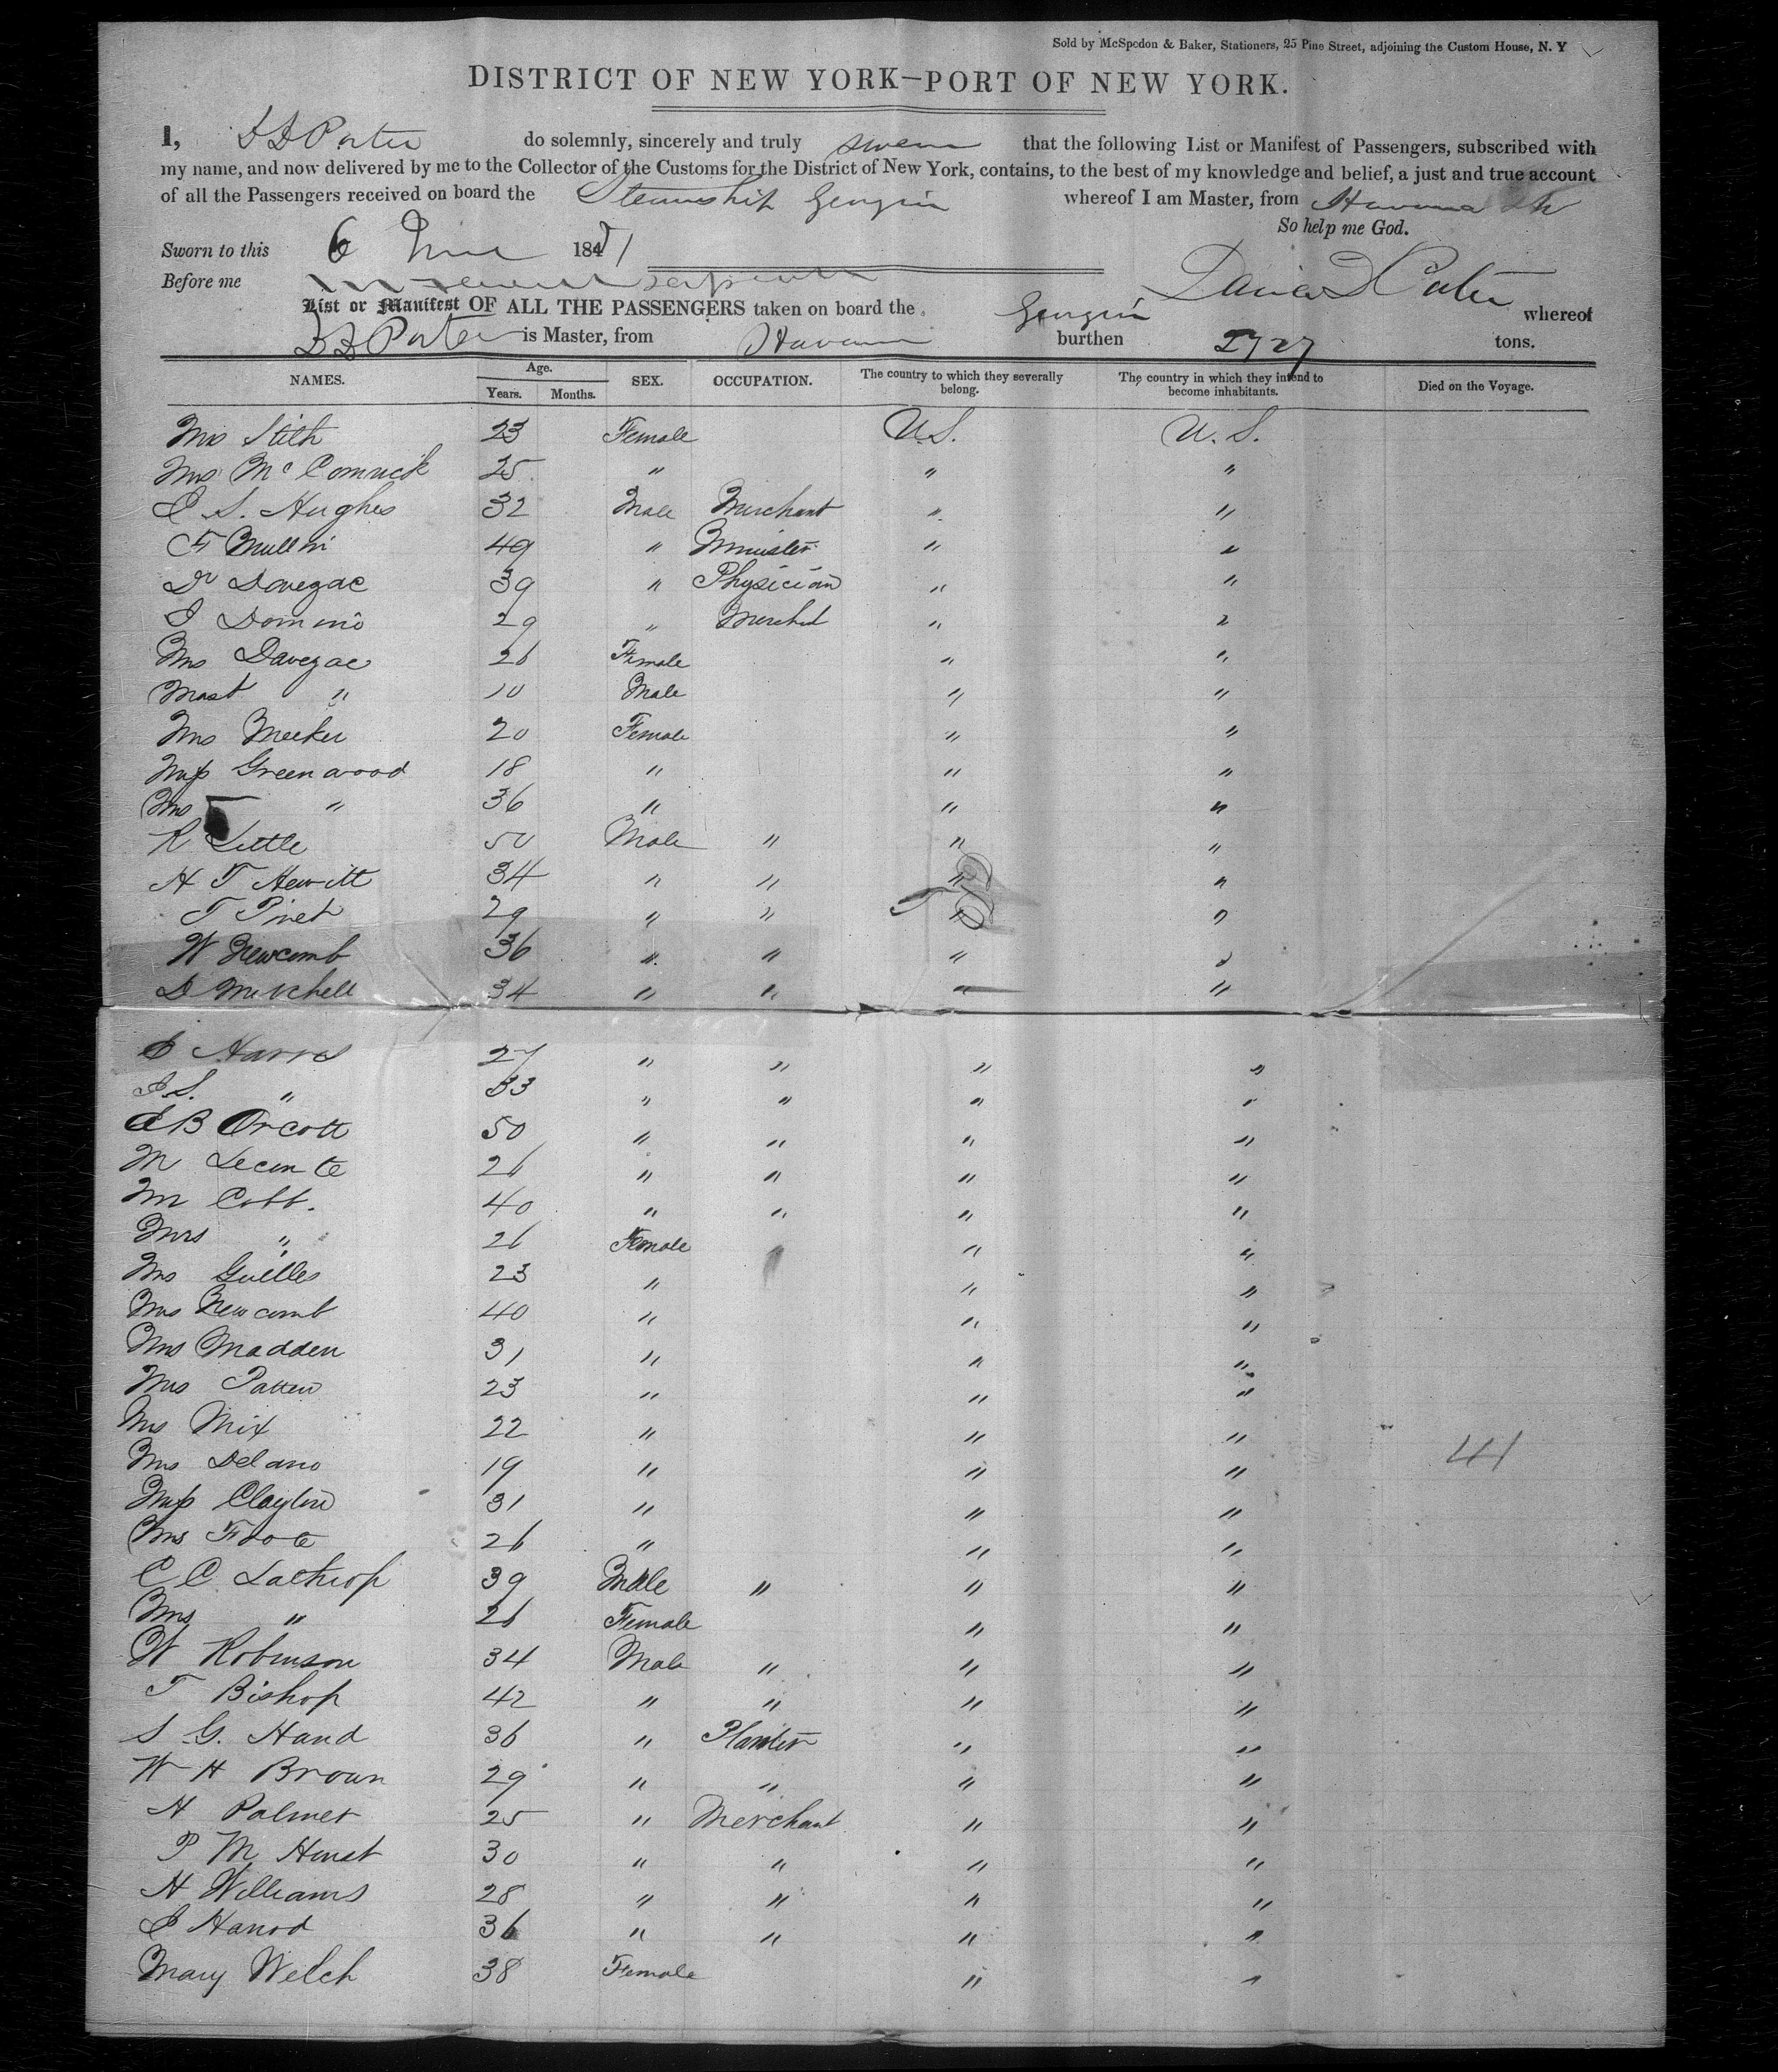 Sold by McSpedon & Baker, Stationers, 25 Pine Street, adjoining the Custom House, N. Y
DISTRICT OF NEW YORK—PORT OF NEW YORK.
I, D D Porter do solemnly, sincerely and truly swear that the following List or Manifest of Passengers, subscribed with
my name, and now delivered by me to the Collector of the Customs for the District of New York, contains, to the best of my knowledge and belief, a just and true account
of all the Passengers received on board the Steamship Georgia whereof I am Master, from Havana
So help me God.
Sworn to this 6 June 1851
Before me David D Porter
List or Manifest OF ALL THE PASSENGERS taken on board the Georgia whereof
D D Porter is Master, from Havana burthen 2727 tons.
NAMES. Age. Years. Months. SEX. OCCUPATION. The country to which they severally belong. The country in which they intend to become inhabitants. Died on the Voyage.
Mrs Stith 23 Female U.S. U.S.
Mrs McCormick 25 " " "
C S. Hughes 32 Male Merchant " "
F Mullin 49 " Minister " "
Dr Davezac 39 " Physician " "
J Domino 29 " Mercht " "
Mrs Davezac 26 Female " "
Mast " 10 Male " "
Mrs Meeker 20 Female " "
Miss Greenwood 18 " " "
Mrs " 36 " " "
R Little 50 Male " " "
H T Hewitt 34 " " " "
T Pinet 29 " " " "
W Newcomb 36 " " " "
D Mitchell 34 " " " "
Harris 27 " " " "
J.S. " 33 " " " "
B Orcott 50 " " " "
M Lecomte 26 " " " "
M Cobb. 40 " " " "
Mrs " 26 Female " " "
Mrs Guilles 23 " " "
Mrs Newcomb 40 " " "
Mrs Madden 31 " " "
Mrs Patten 23 " " "
Mrs Mix 22 " " "
41
Mrs Delano 19 " " "
Miss Clayton 31 " " "
Mrs Foote 26 " " "
C C Lathrop 39 Male " " "
Mrs " 26 Female " "
W Robinson 34 Male " " "
T Bishop 42 " " " "
S G. Hand 36 " Planter " "
W H Brown 29 " " " "
H Palmer 25 " Merchant " "
P M Hurst 30 " " " "
H Williams 28 " " " "
J Harrod 36 " " " "
Mary Welch 38 Female " "